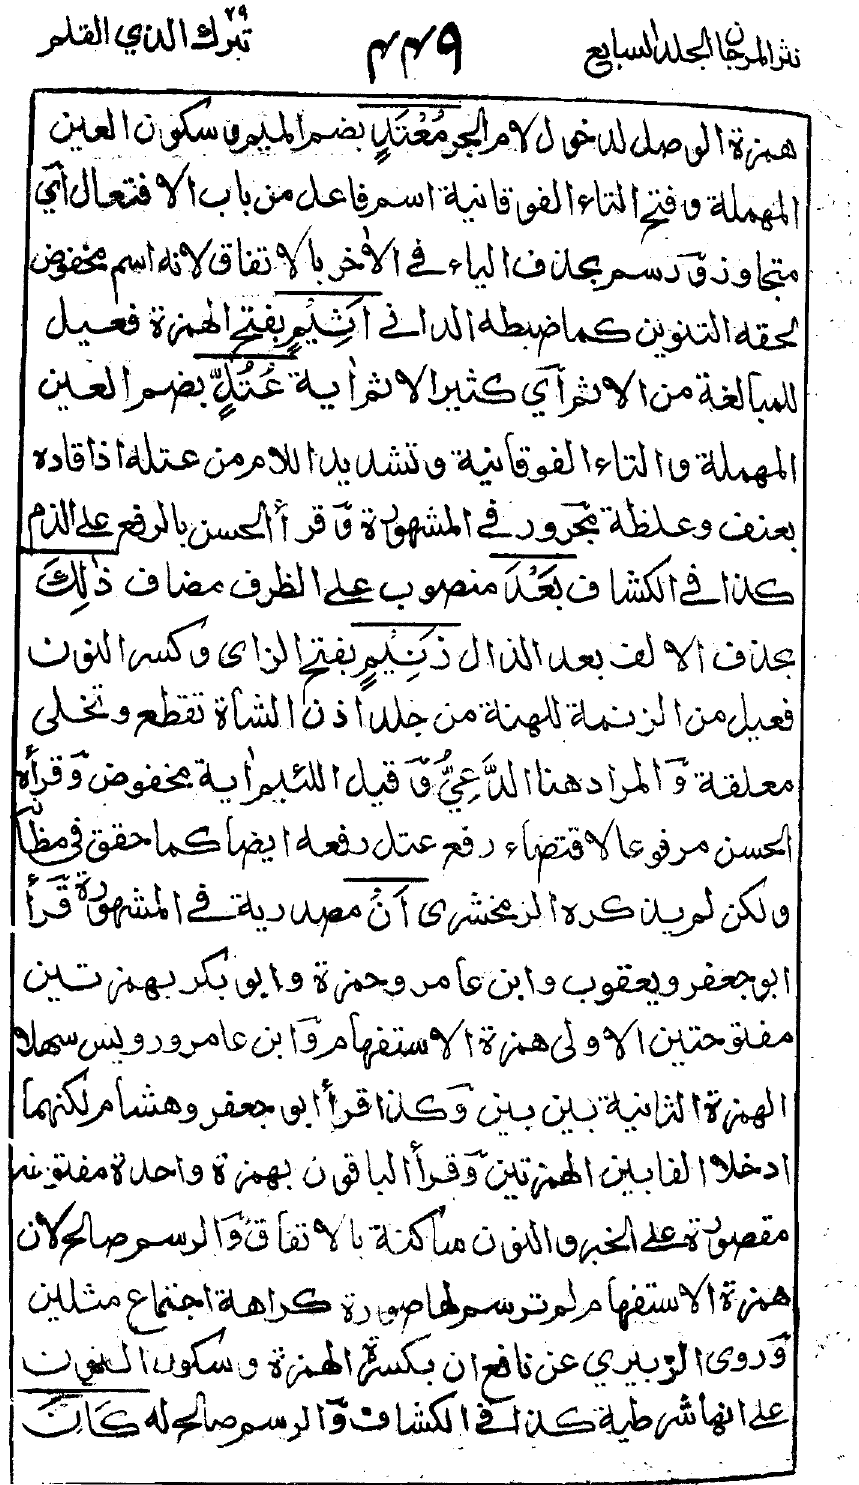 نثر المرجان الجلد السابع
٤٤٩
تبرك الذي ٢٩ القلم
همزة الوصل لدخول لام الجر مُعْتَدٍ بضم الميم وسكون العين
المهملة وفتح التاء الفوقانية اسم فاعل من باب الافتعال أي
متجاوز وَرسم بحذف الياء في الاٰخر بالاتفاق لانه اسم مخفوض
لحقه التنوين كما ضبطه الداني اَثِيْمٍ بفتح الهمزة فعيل
للمبالغة من الاثم أي كثير الاثم اٰية عُتُلٍّ بضم العين
المهملة والتاء الفوقانية وتشديد اللام من عتله اذا قاده
بعنف وغلظة مجرور في المشهورة وَقرأ الحسن بالرفع على الذم
كذا في الكشاف بَعْدَ منصوب على الظرف مضاف ذٰلِكَ
بحذف الالف بعد الذال زَنِيْمٍ بفتح الزاى وكسر النون
فعيل من الزنمة للهنة من جلد اذن الشأة تقطع وتخلى
معلقة وَالمراد هنا الدَّعِيُّ وَقيل اللئيم اٰية مخفوض وَقرأه
الحسن مرفوعا لاقتضاء رفع عتل رفعه ايضا كما حقق في مظانه
ولكن لم يذكره الزمخشرى اَنْ مصدرية في المشهورة قَرأ
ابو جعفر ويعقوب وابن عامر وحمزة وابو بكر بهمزتين
مفتوحتين الاولى همزة الاستفهام وَابن عامر ورويس سهلا
الهمزة الثانية بين بين وَكذا قرأ ابو جعفر وهشام لكنهما
ادخلا الفا بين الهمزتين وَقرأ الباقون بهمزة واحدة مفتوحة
مقصورة على الخبر والنون ساكنة بالاتفاق وَالرسم صالح لان
همزة الاستفهام لم ترسم لها صورة كراهة اجتماع مثلين
وَروى الزبيري عن نافع ان بكسرة الهمزة وسكون النون
على انها شرطية كذا في الكشاف وَالرسم صالح له كَانَ